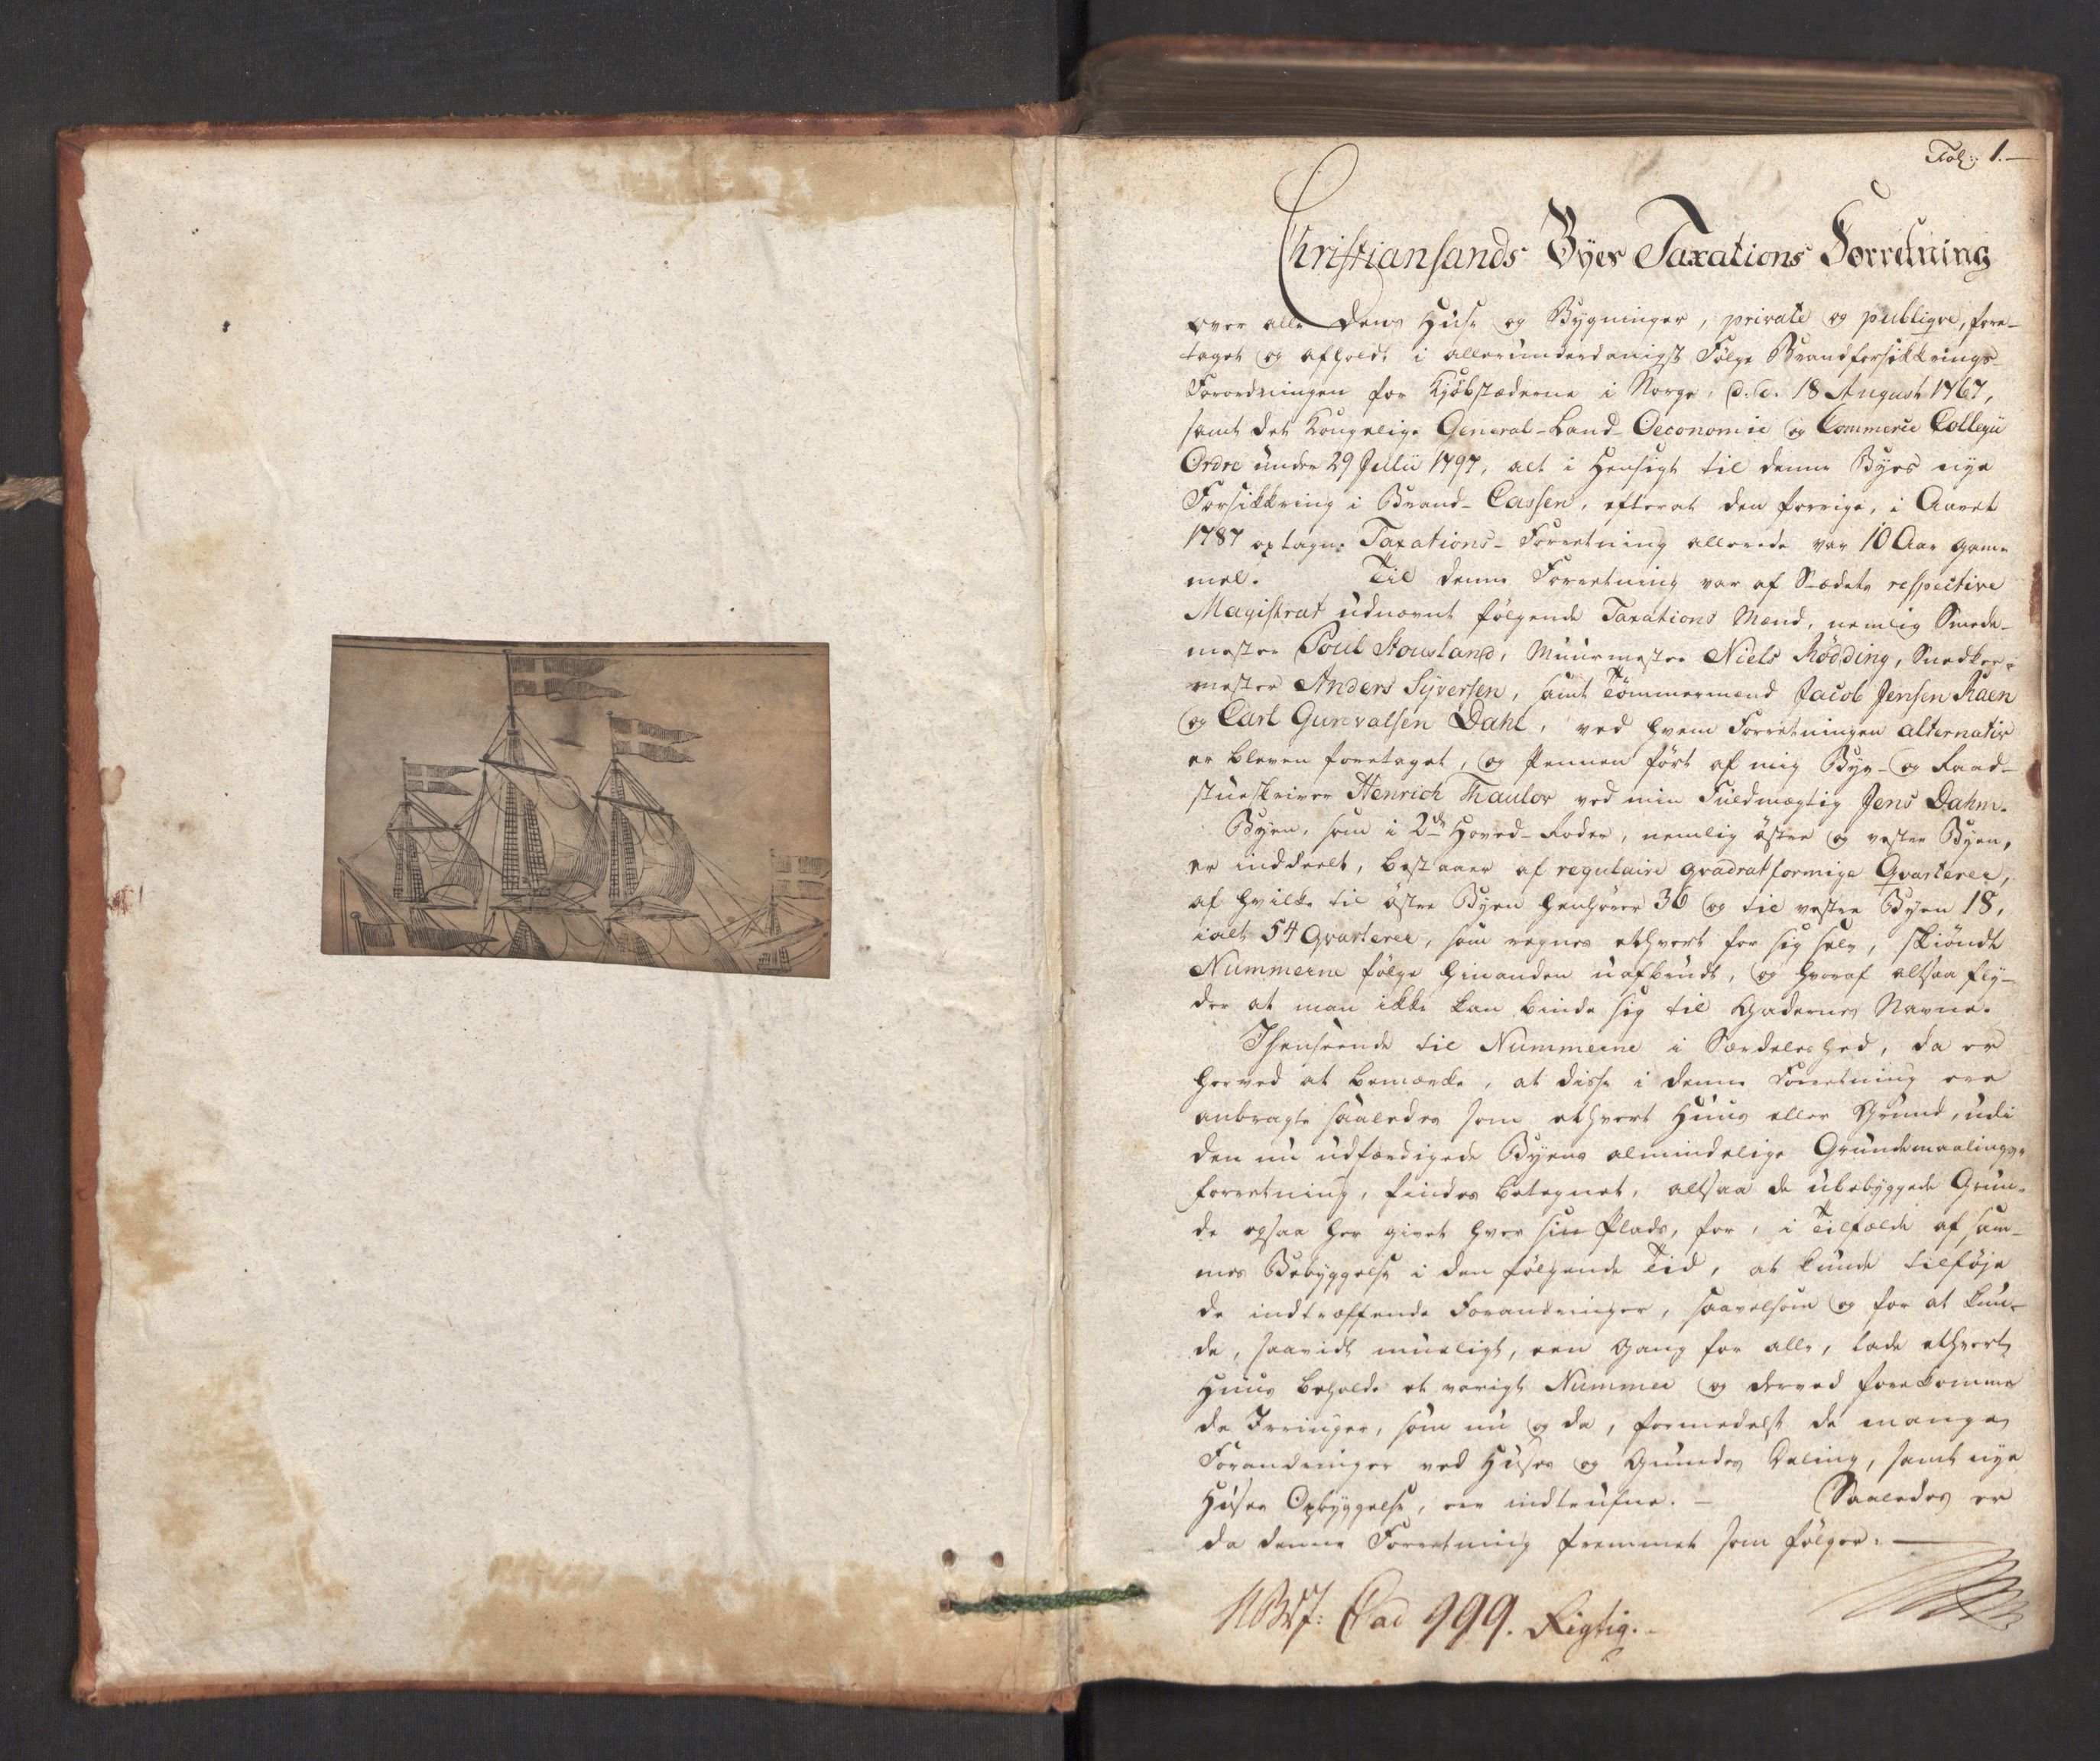 Fol: 1.
Christiansands Byes Taxations Forretning
over alle dens Huse og Bygninger, private og publiqve, fore-
taget og afholdt i allerunderdanigst Følge Brandforsikkrings-
Forordningen for Kjøbstæderne i Norge, d. d. 18 August 1767,
samt det Kongelige General-Land-Oeconomie og Commerce Collegii
Ordre under 29 Julii 1797, alt i Hensigt til denne Byes nye
Forsikkring i Brand-Cassen, efterat den forrige, i Aaret
1787 optagne Taxations-Forretning allerede var 10 Aar gam-
mel. Til denne Forretning var af Stædets respective
Magistrat udnævnt følgende Taxations Mænd, nemlig Smede-
mester Poul Stousland, Muurmester Niels Rødding, Snedker-
mester Anders Syversen, samt Tømmermænd Jacob Jensen Raen
og Carl Gunvalsen Dahl, ved hvem Forretningen alternativ
er bleven foretaget, og Pennen ført af mig Bye- og Raad-
stueskriver Henrich Thaulov ved min Fuldmægtig Jens Dahm.
Byen, som i 2de Hoved-Roder, nemlig østre og vestre Byen,
er inddeelt, bestaaer af regulaire qvadratformige Qvarterer,
af hvilke til østre Byen henhører 36 og til vestre Byen 18,
ialt 54 Qvarterer, som regnes ethvert for sig selv, skiøndt
Nummerne følge hinanden uafbrudt, og hvoraf altsaa fly-
der at man ikke kan binde sig til Gadernes Navne.
Ihenseende til Nummerne i Særdeleshed, da er
herved at bemærke, at disse i denne Forretning ere
anbragte saaledes som ethvert Huus eller Grund, udi
den nu udfærdigede Byens almindelige Grundemaalings-
forretning, findes betegnet, altsaa de ubebyggede Grun-
de ogsaa her givet hver sin Plads, for, i Tilfælde af sam-
mes Bebyggelse i den følgende Tid, at kunde tilføje
de indtræffende Forandringer, saavelsom og for at kun-
de, saavidt mueligt, een Gang for alle, lade ethvert
Huus beholde et varigt Nummer og derved forekomme
de Irringer, som nu og da, formedelst de mange
Forandringer ved Huses og Grundes Deling, samt nye
Huses Opbyggelse, ere indtrufne. – Saaledes er
da denne Forretning fremmet som følger:
Pad 999. Rigtig.